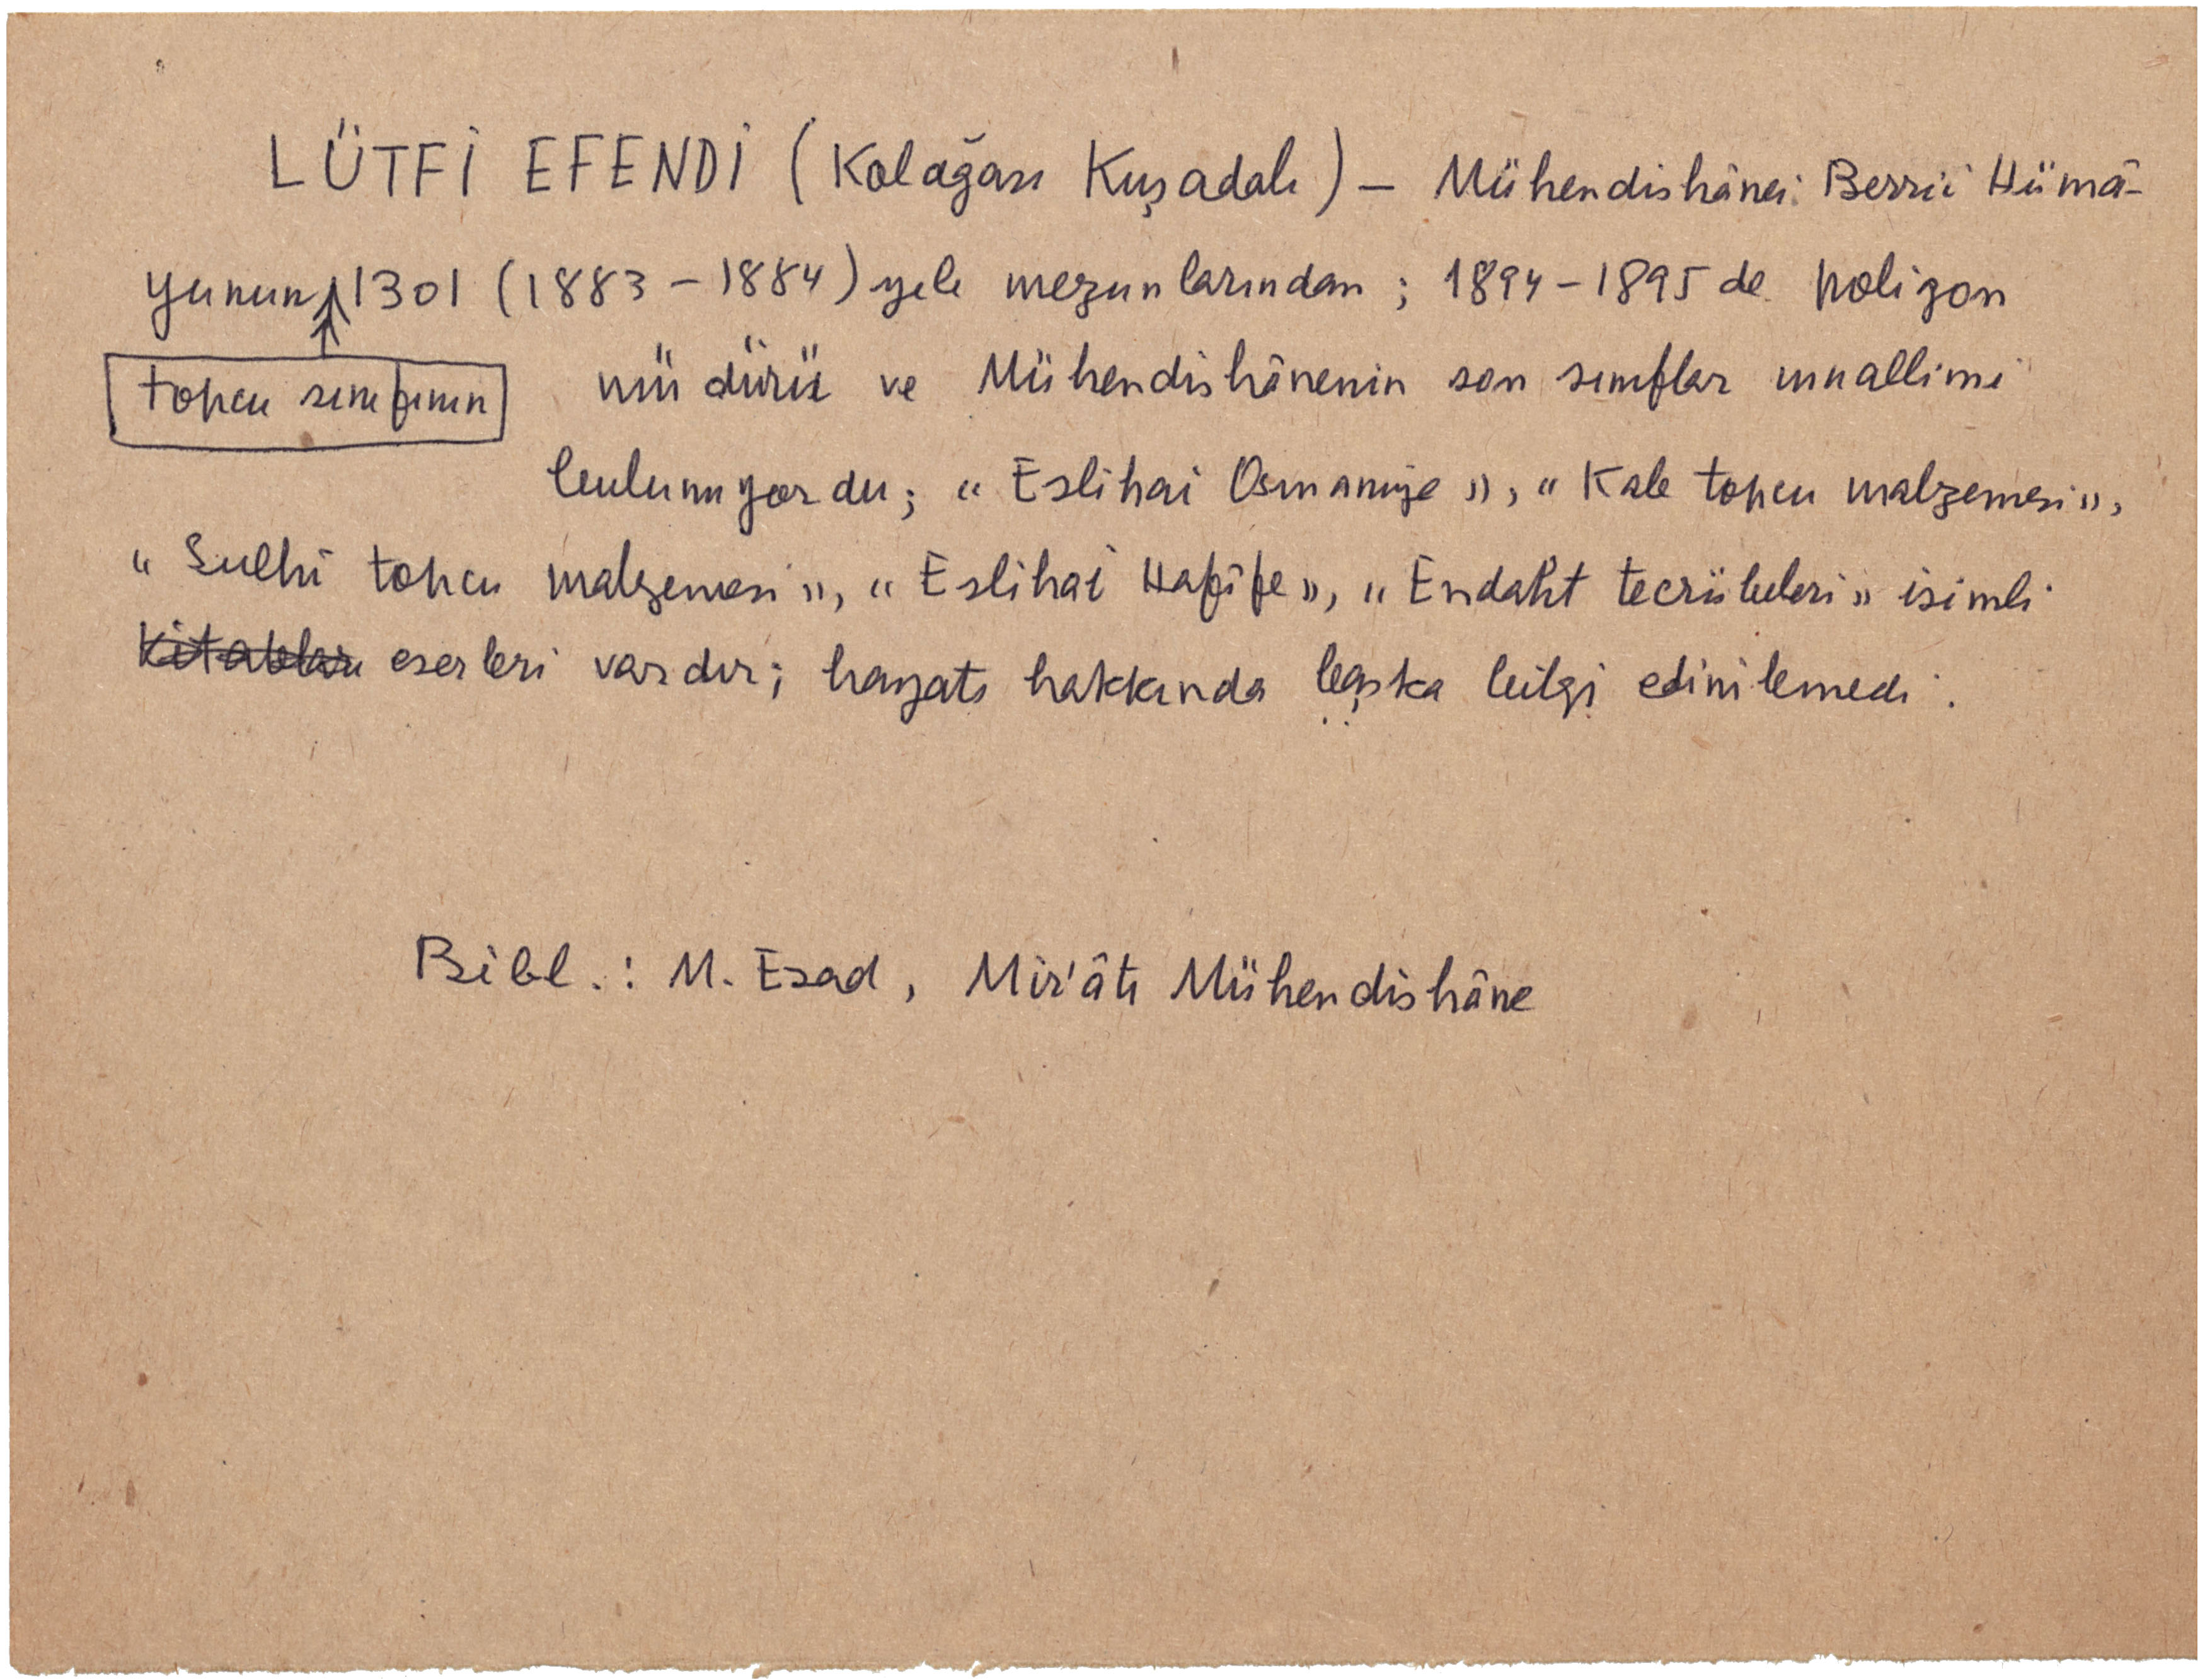 LÜTFİ EFENDİ (Kolağası Kuşadalı) – Mühendishânei Berrii Hümâ-
yunun 1301 (1883 – 1884) yılı mezunlarından ; 1894 – 1895 de poligon
topcu sınıfının
müdürü ve Mühendishânenin son sınıflar muallimi
bulunuyordu ; « Eslihai Osmaniye », « Kale topcu malzemesi »,
« Sulhi topcu malzemesi », « Eslihai Hafîfe », « Endaht tecrübeleri » isimli
Kitabları eserleri vardır ; hayatı hakkında başka bilgi edinilemedi .
Bibl. : M. Esad , Mir'âtı Mühendishâne